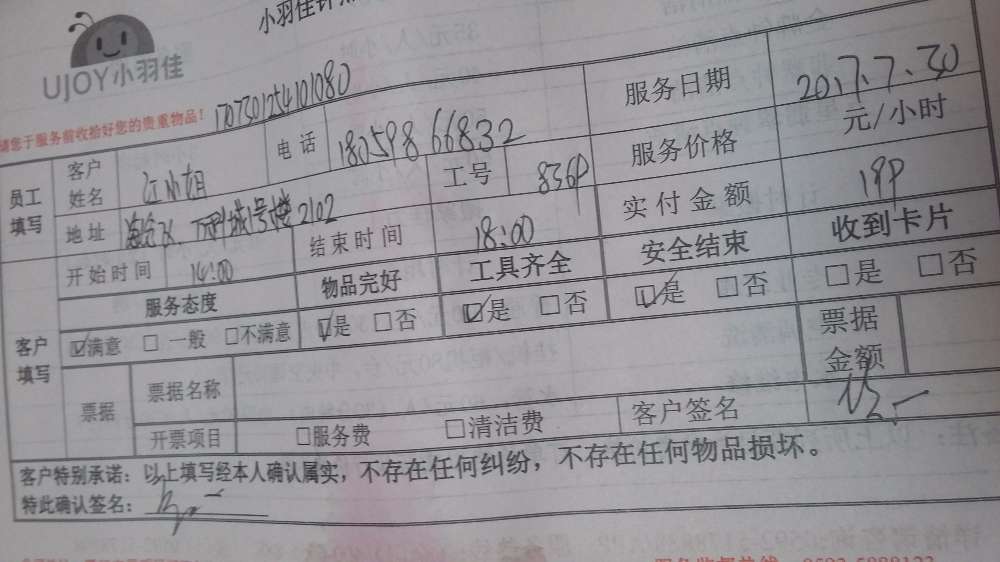 小羽佳
UJOY小羽佳
请您于服务前收拾好您的贵重物品！ 1707301254101080
员工填写 客户姓名 江小姐 电话 18059866832 服务日期 2017.7.30
地址 万科城1号楼2102 工号 服务价格 元/小时
开始时间 14:00 结束时间 18:00 实付金额
客户填写 服务态度 物品完好 工具齐全 安全结束 收到卡片
☑满意 □一般 □不满意 ☑是 □否 ☑是 □否 ☑是 □否 □是 □否
票据 票据名称 票据金额
开票项目 □服务费 □清洁费 客户签名
客户特别承诺：以上填写经本人确认属实，不存在任何纠纷，不存在任何物品损坏。
特此确认签名：